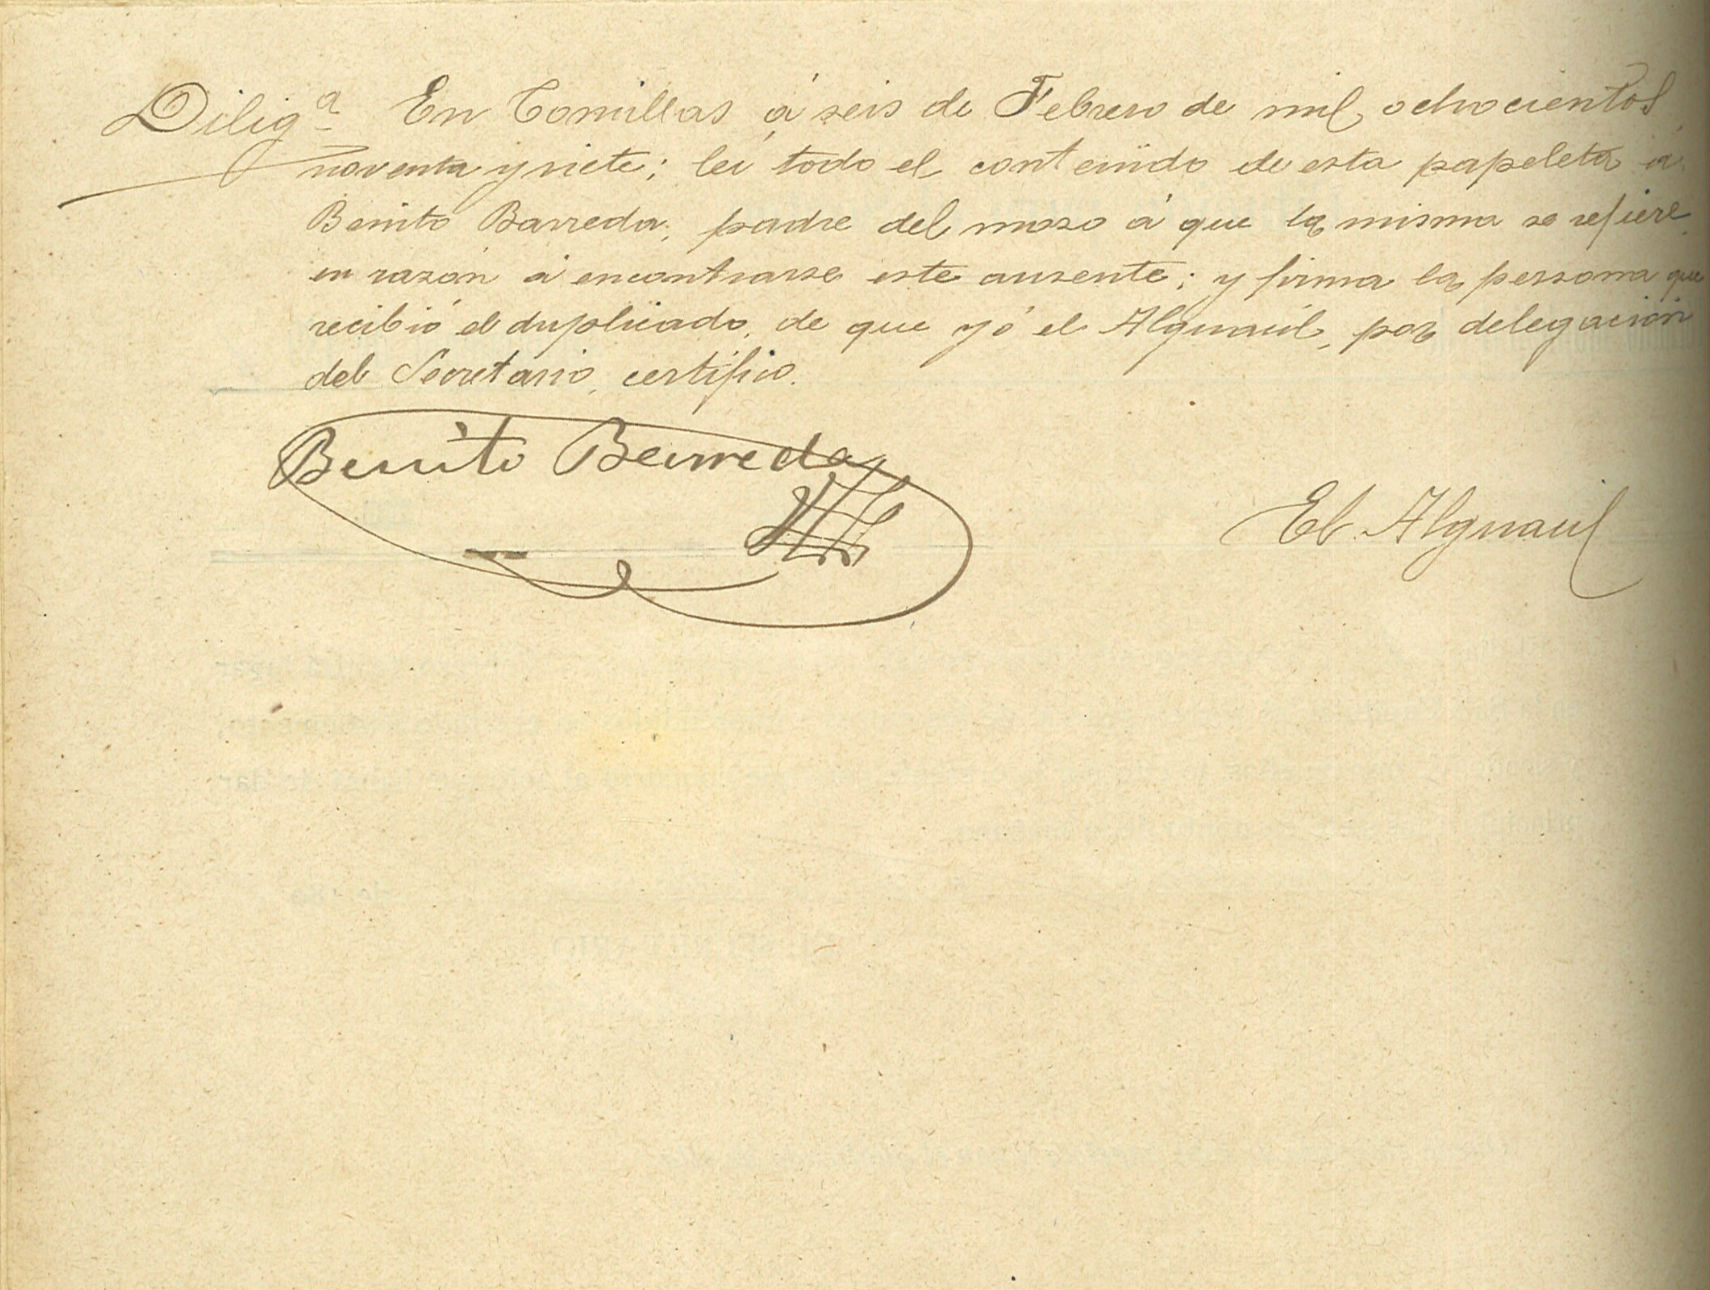 Dilig.ª En Comillas á seis de Febrero de mil ochocientos
noventa y siete; leí todo el contenido de esta papeleta á
Benito Barreda, padre del mozo á que la misma se refiere,
en razón á encontrarse este ausente; y firma la persona que
recibió el duplicado, de que yó el Alguacil, por delegación
del Secretario, certifico.
Benito Barreda
El Alguacil